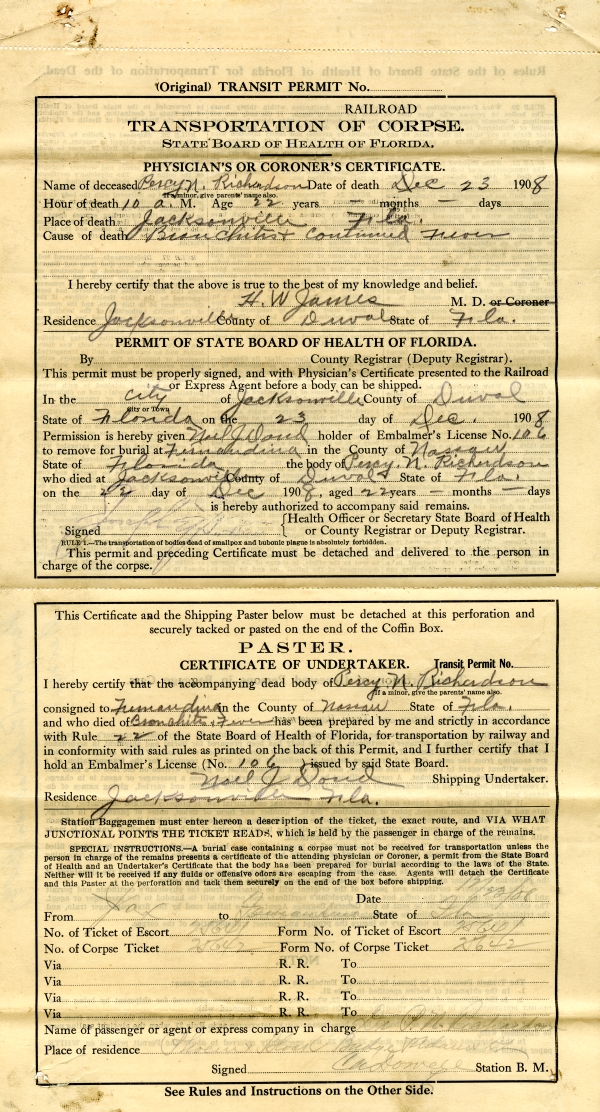 (Original) TRANSIT PERMIT No.
RAILROAD
TRANSPORTATION OF CORPSE.
STATE BOARD OF HEALTH OF FLORIDA.
PHYSICIAN'S OR CORONER'S CERTIFICATE.
Name of deceased Percy N. Richardson Date of death Dec 23 1908
If a minor, give parents' name also.
Hour of death 10 a. M. Age 22 years - months - days
Place of death Jacksonville Fla.
Cause of death Bronchitis & Continued Fever
I hereby certify that the above is true to the best of my knowledge and belief.
H. W James M. D. or Coroner
Residence Jacksonville County of Duval State of Fla.
PERMIT OF STATE BOARD OF HEALTH OF FLORIDA.
By County Registrar (Deputy Registrar).
This permit must be properly signed, and with Physician's Certificate presented to the Railroad
or Express Agent before a body can be shipped.
In the City of Jacksonville County of Duval
City or Town
State of Florida on the 23 day of Dec. 1908
Permission is hereby given Noel J Doud holder of Embalmer's License No. 106
to remove for burial at Fernandina in the County of Nassau
State of Florida the body of Percy. N. Richardson
who died at Jacksonville County of Duval State of Fla.
on the 22 day of Dec 1908, aged 22 years - months - days
is hereby authorized to accompany said remains.
Signed {Health Officer or Secretary State Board of Health
or County Registrar or Deputy Registrar.
RULE 1.—The transportation of bodies dead of smallpox and bubonic plague is absolutely forbidden.
This permit and preceding Certificate must be detached and delivered to the person in
charge of the corpse.
This Certificate and the Shipping Paster below must be detached at this perforation and
securely tacked or pasted on the end of the Coffin Box.
PASTER.
CERTIFICATE OF UNDERTAKER. Transit Permit No.
I hereby certify that the accompanying dead body of Percy N. Richardson
If a minor, give the parents' name also.
consigned to Fernandina in the County of Nassau State of Fla.
and who died of Bronchitis, Fever has been prepared by me and strictly in accordance
with Rule 22 of the State Board of Health of Florida, for transportation by railway and
in conformity with said rules as printed on the back of this Permit, and I further certify that I
hold an Embalmer's License (No. 106 ) issued by said State Board.
Noel J Doud Shipping Undertaker.
Residence Jacksonville Fla.
Station Baggagemen must enter hereon a description of the ticket, the exact route, and VIA WHAT
JUNCTIONAL POINTS THE TICKET READS, which is held by the passenger in charge of the remains.
SPECIAL INSTRUCTIONS.—A burial case containing a corpse must not be received for transportation unless the
person in charge of the remains presents a certificate of the attending physician or Coroner, a permit from the State Board
of Health and an Undertaker's Certificate that the body has been prepared for burial according to the laws of the State.
Neither will it be received if any fluids or offensive odors are escaping from the case. Agents will detach the Certificate
and this Paster at the perforation and tack them securely on the end of the box before shipping.
Date
From Jax to Fernandina State of Fla
No. of Ticket of Escort 25641 Form No. of Ticket of Escort 25641
No. of Corpse Ticket 25642 Form No. of Corpse Ticket 25642
Via R. R. To
Via R. R. To
Via R. R. To
Via R. R. To
Name of passenger or agent or express company in charge
Place of residence
Signed Station B. M.
See Rules and Instructions on the Other Side.